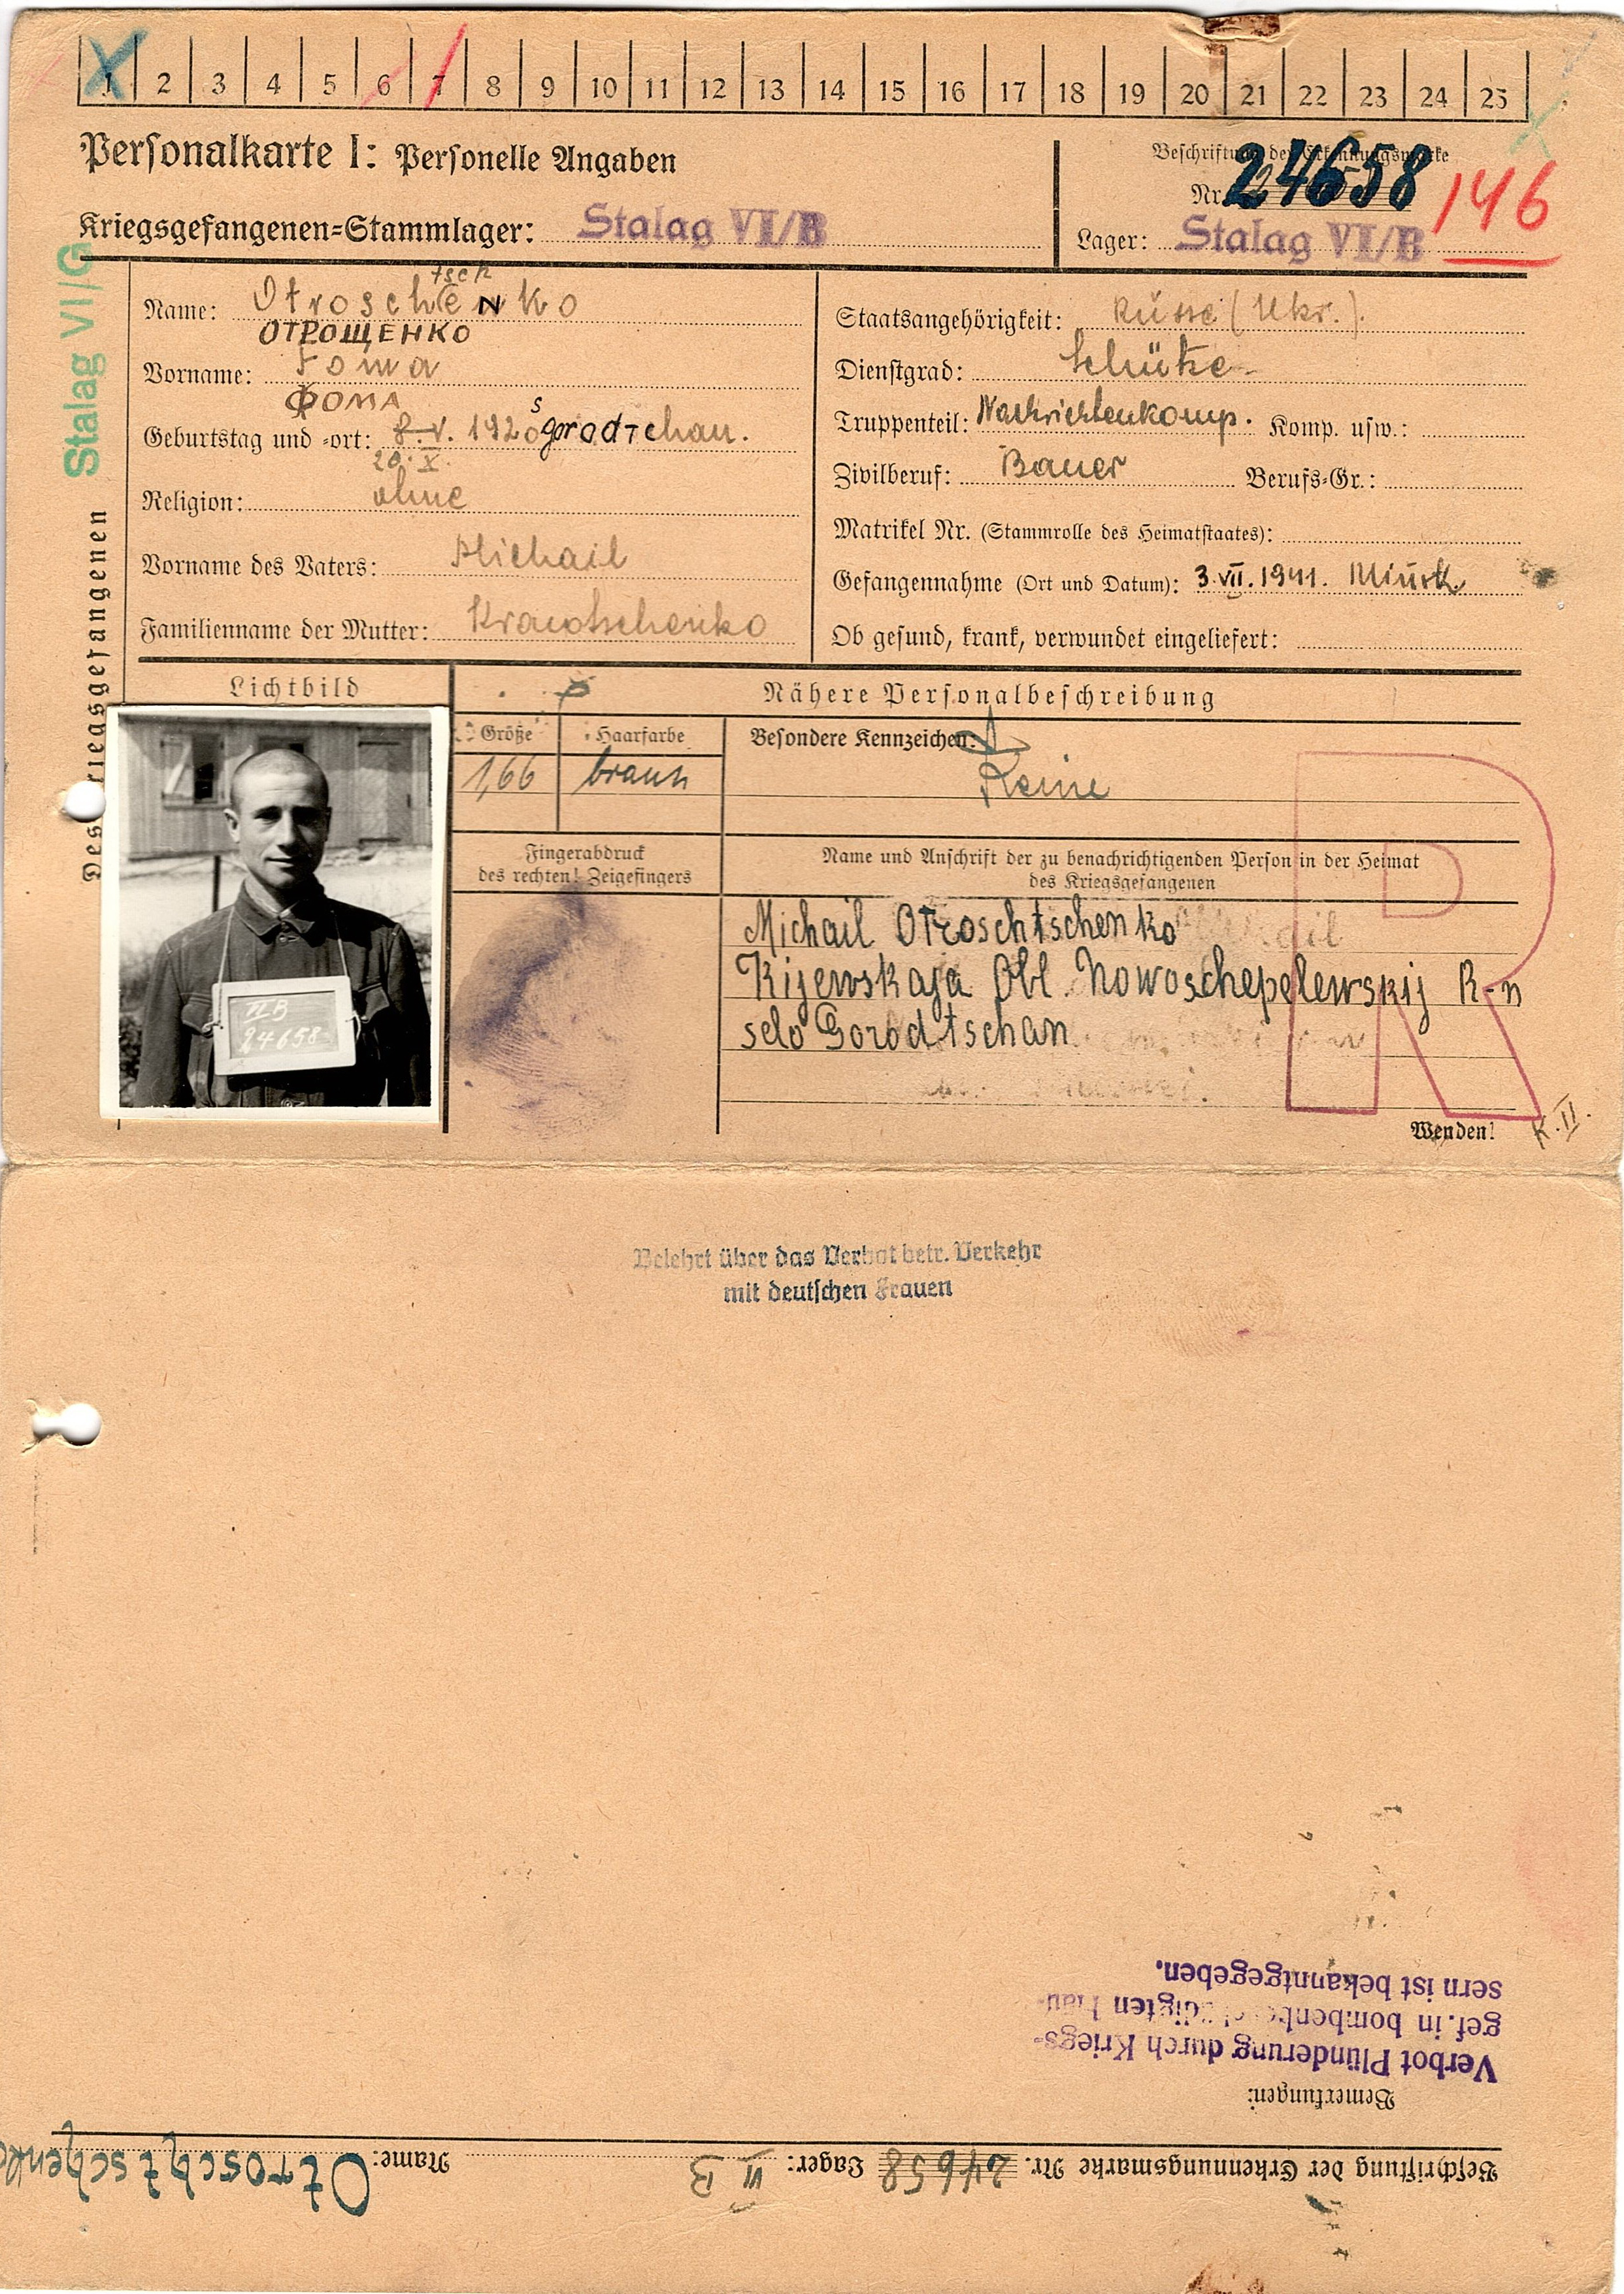 1 2 3 4 5 6 7 8 9 10 11 12 13 14 15 16 17 18 19 20 21 22 23 24 25
Personalkarte I: Personelle Angaben
Kriegsgefangenen-Stammlager: Stalag VI/B
Beschriftung der Erkennungsmarke
Nr. 24658
146
Lager: Stalag VI/B
Stalag VI/G
Des Kriegsgefangenen
tsch
Name: Otroschenko
ОТРОЩЕНКО
Vorname: Foma
ФОМА
Geburtstag und -ort: 8.V. 1920 Gorodtchan.
20.X.
Religion: ohne
Vorname des Vaters: Michail
Familienname der Mutter: Krawtschenko
Staatsangehörigkeit: Russe (Ukr.).
Dienstgrad: Schütze
Truppenteil: Nachrichtenkomp. Komp. usw.:
Zivilberuf: Bauer Berufs-Gr.:
Matrikel Nr. (Stammrolle des Heimatstaates):
Gefangennahme (Ort und Datum): 3.VII.1941. Minsk
Ob gesund, krank, verwundet eingeliefert:
Lichtbild
Nähere Personalbeschreibung
Größe Haarfarbe Besondere Kennzeichen:
1,66 braun Keine
VI B
24658
Fingerabdruck
des rechten! Zeigefingers
Name und Anschrift der zu benachrichtigenden Person in der Heimat
des Kriegsgefangenen
Michail Otroschtschenko
Kijewskaja Obl. Nowoschepelewskij R-n
selo Gorodtschan
R
Wenden!
K.II.
Belehrt über das Verbot betr. Verkehr
mit deutschen Frauen
Beschriftung der Erkennungsmarke Nr. 24658 Lager: VI B Name: Otroschtschenko
Bemerkungen:
Verbot Plünderung durch Kriegs-
gef. in bombenbeschädigten Häu-
sern ist bekanntgegeben.